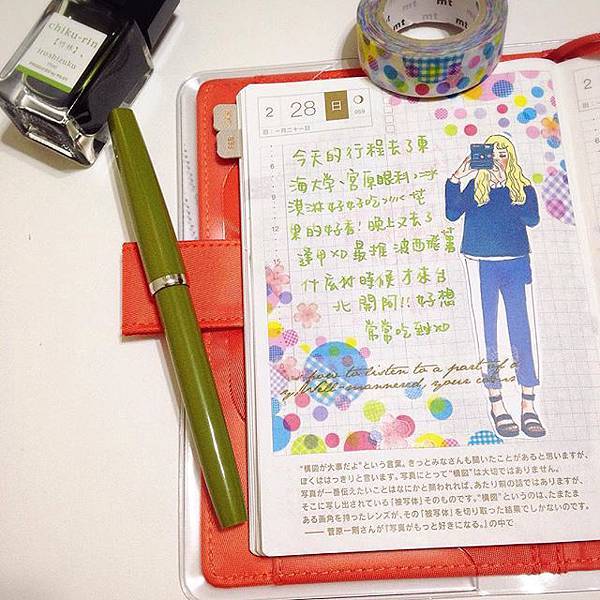 chiku-rin
【竹林】
iroshizuku
mt
mt
JAN
FEB
2 28 日 059
旧:一月二十一日
今天的行程去了東
海大學、宮原眼科
淇淋好好吃
果的好香!晚上又去了
逢甲XD 最推 波西鹿薯
什麼時候才來台
北開阿!!好想
常常吃到XD
how to listen to a part of a
Well-mannered, your
"構図が大事だよ"という言葉。きっとみなさんも聞いたことがあると思いますが、
ぼくははっきりと言います。写真にとって"構図"は大切ではありません。
写真が一番伝えたいことはなにかと問われれば、あたり前の話ではありますが、
そこに写し出されている「被写体」そのものです。"構図"というのは、たまたま
ある画角を持ったレンズが、その「被写体」を切り取った結果でしかないのです。
—— 菅原一剛さんが『写真がもっと好きになる。』の中で